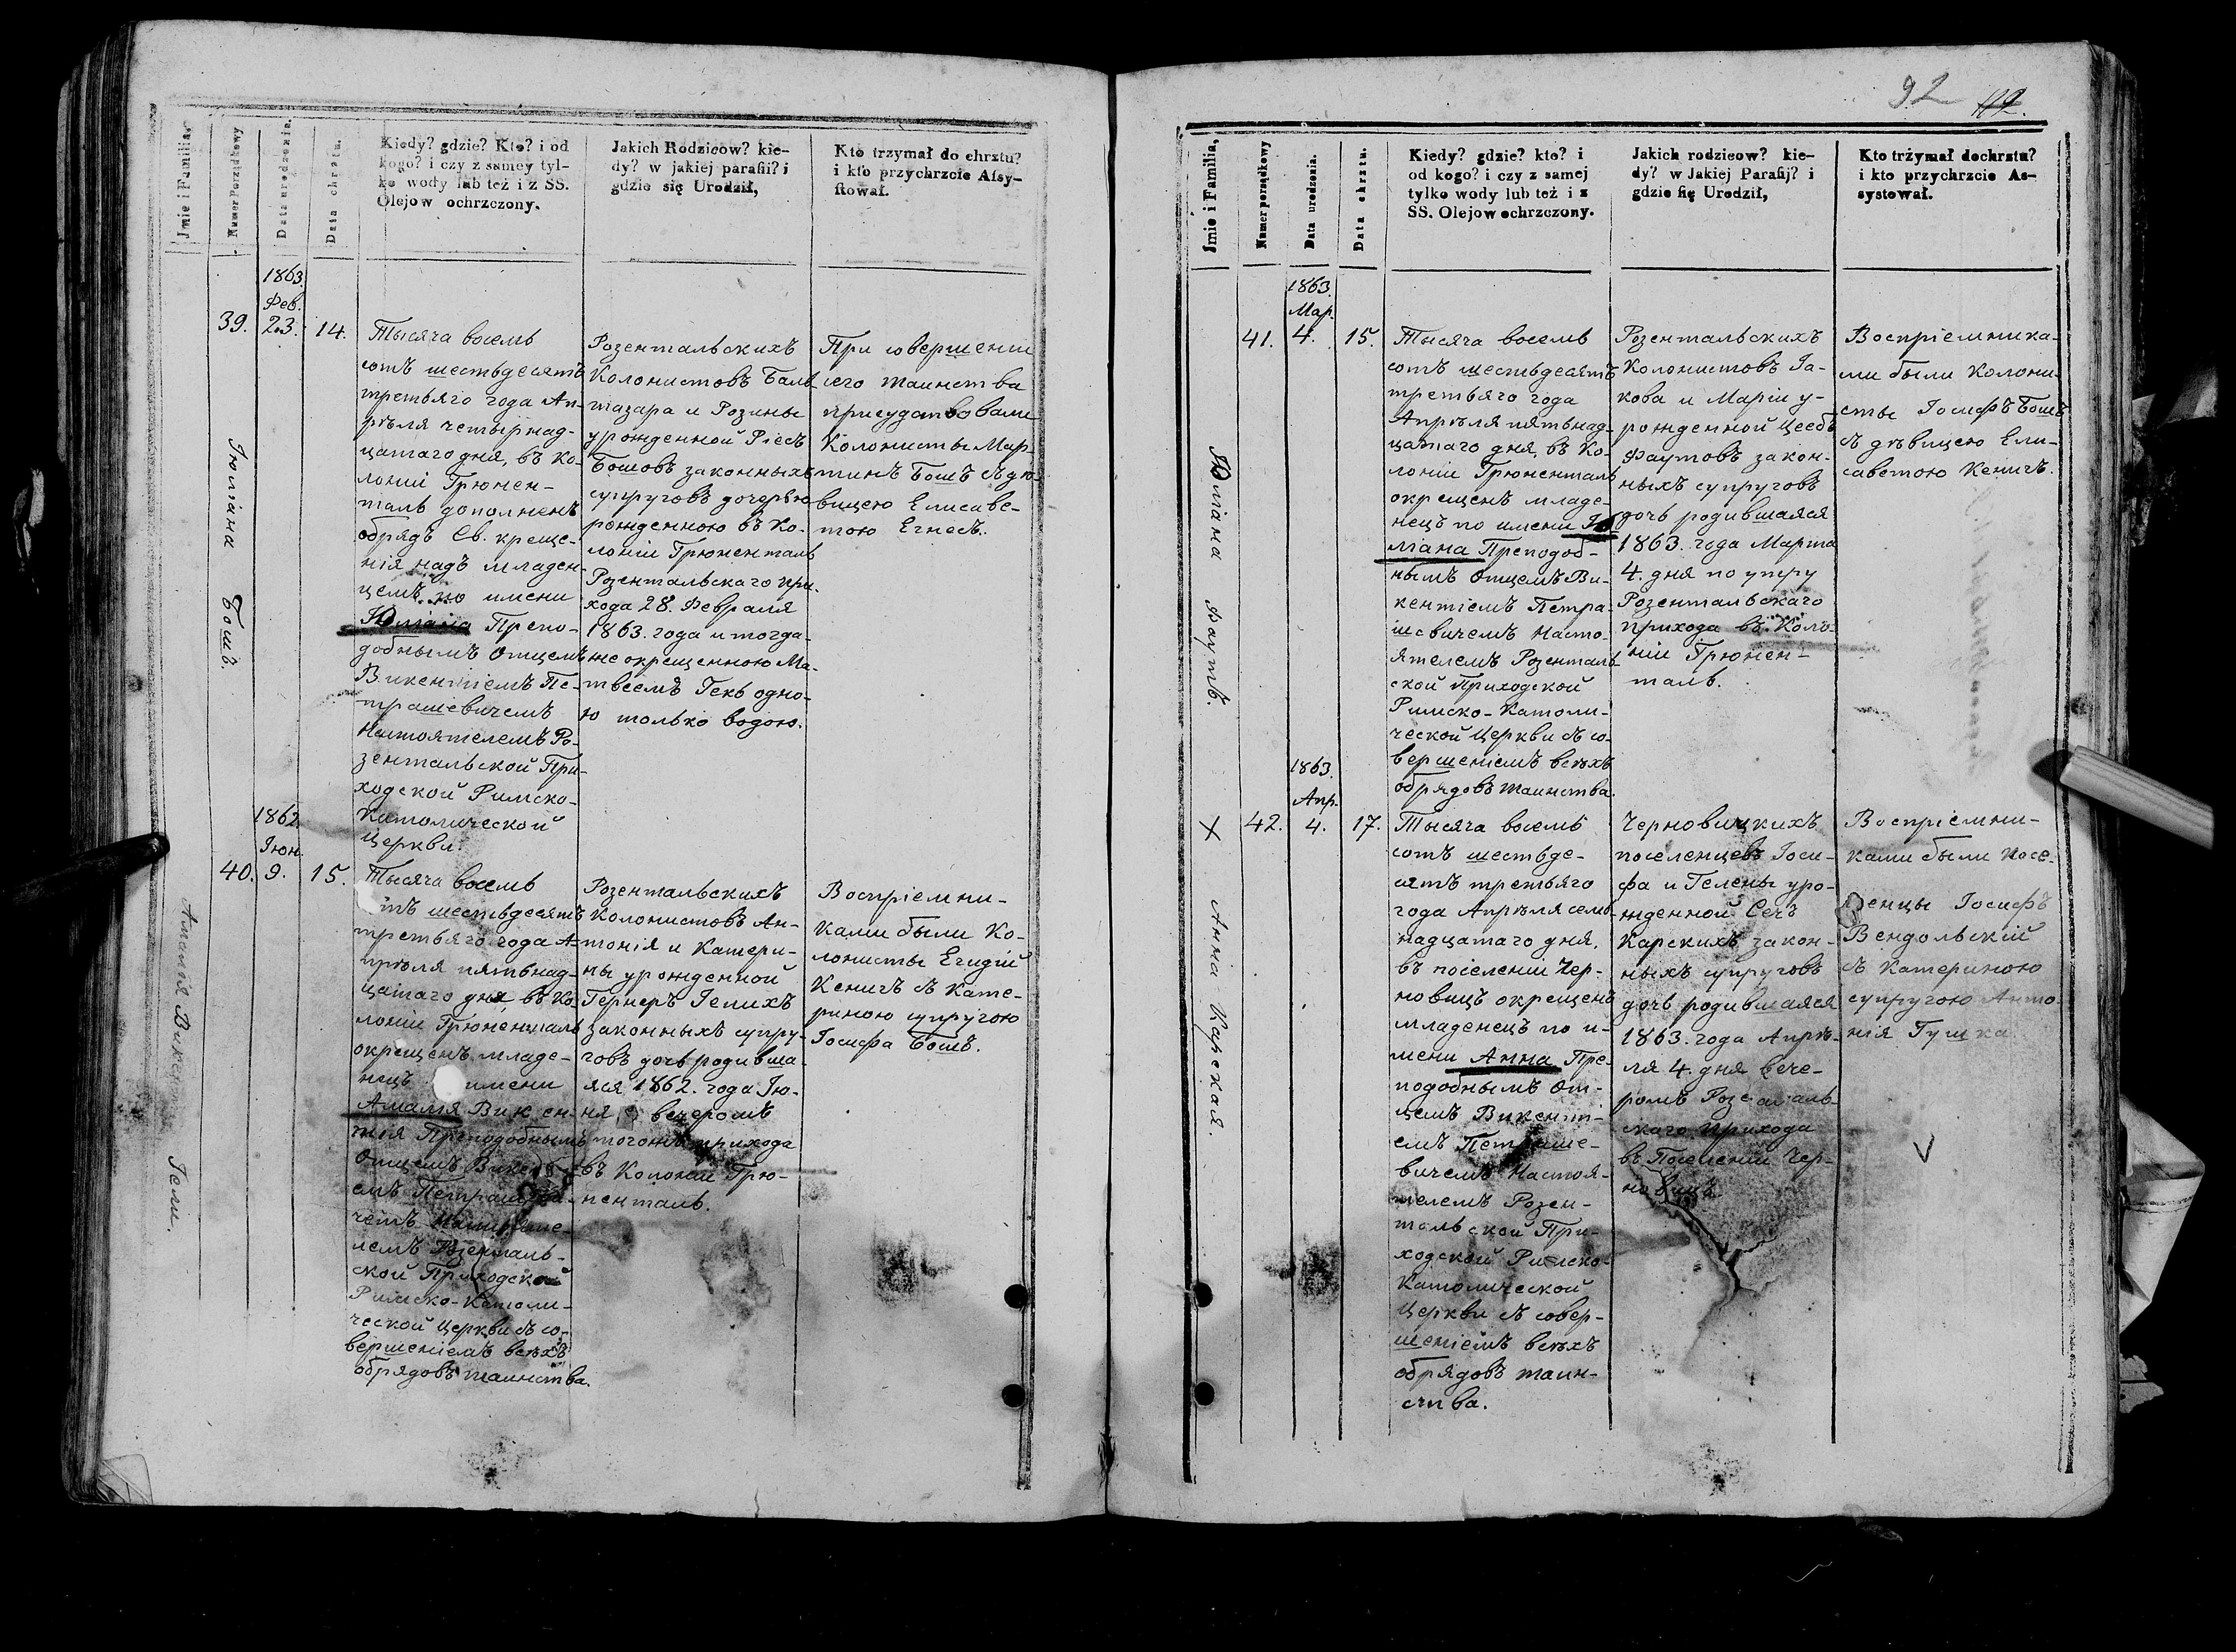 Jmie i Familia.
Numer Porządkowy
Data urodzenia.
Data chrztu.
Kiedy? gdzie? Kto? i od
kogo? i czy z samey tyl-
ko wody lub też i z SS.
Olejow ochrzczony.
Jakich Rodzicow? kie-
dy? w jakiej parafii? i
gdzie się Urodził,
Kto trzymał do chrztu?
i kto przychrzcie Assy-
stował.
Юліана Бошъ.
1863.
Фев.
39. 23. 14.
Тысяча восемь
сотъ шестьдесятъ
третьяго года Ап-
рѣля четырнад-
цатаго дня, въ Ко-
лоніи Грюнен-
таль дополненъ
обрядъ Св. креще-
нія надъ младен-
цемъ по имени
Юліана Препо-
добнымъ Отцемъ
Викентіемъ Пе-
трашевичемъ
Настоятелемъ Ро-
зентальской При-
ходской Римско-
Католической
Церкви.
Розентальскихъ
Колонистовъ Баль-
тазара и Розины
урожденной Ріесъ
Бошовъ законныхъ
супруговъ дочерью
рожденною въ Ко-
лоніи Грюненталь
Розентальскаго при-
хода 28. Февраля
1863. года и тогда-
же окрещенною Ма-
твеемъ Гекъ одно-
ю только водою.
При совершеніи
сего таинства
присудствовали
Колонисты Мар-
тинъ Бошъ съ дѣ-
вицею Елисаве-
тою Егнесъ.
Амалія Викент
Гели.
1862.
Іюн.
40. 9. 15.
Тысяча восемь
шестьдесятъ
третьяго года А-
прѣля пятьнад-
цатаго дня, въ Ко-
лоніи Грюненталь
окрещенъ младе-
нецъ имени
Амалія Викен-
тія Преподобнымъ
Отцемъ Викенті-
емъ Петрашеви-
чемъ Настояте-
лемъ Розенталь-
ской Приходской
Римско-Католи-
ческой Церкви съ со-
вершеніемъ всѣхъ
обрядовъ таинства.
Розентальскихъ
Колонистовъ Ан-
тонія и Катери-
ны урожденной
Гернеръ Гелихъ
законныхъ супру-
говъ дочь родивша-
яся 1862. года Ію-
ня 9 вечеромъ
тогожъ прихода
въ Колоніи Грю-
ненталь.
Воспріемни-
ками были Ко-
лонисты Егидій
Кеничъ съ Кате-
риною супругою
Іосифа Бошъ.
92 112.
Jmie i Familia,
Numer porządkowy
Data urodzenia.
Data chrztu.
Kiedy? gdzie? kto? i
od kogo? i czy z samej
tylko wody lub też i z
SS. Olejow ochrzczony.
Jakich rodzicow? kie-
dy? w Jakiej Parafij? i
gdzie się Urodził,
Kto trżymał dochrztu?
i kto przychrzcie As-
systował.
Юліана Фаутъ.
1863.
Мар.
41. 4. 15.
Тысяча восемь
сотъ шестьдесятъ
третьяго года
Апрѣля пятьнад-
цатаго дня, въ Ко-
лоніи Грюненталь
окрещенъ младе-
нецъ по имени Ю-
ліана Преподоб-
нымъ Отцемъ Ви-
кентіемъ Петра-
шевичемъ Насто-
ятелемъ Розенталь-
ской Приходской
Римско-Католи-
ческой Церкви съ со-
вершеніемъ всѣхъ
обрядовъ таинства.
Розентальскихъ
Колонистовъ Іа-
кова и Маріи у-
рожденной Цеебъ
Фаутовъ закон-
ныхъ супруговъ
дочь родившаяся
1863. года Марта
4. дня по утру
Розентальскаго
прихода въ Коло-
ніи Грюнен-
таль.
Воспріемника-
ми были Колони-
сты Іосифъ Бошъ
съ дѣвицею Ели-
саветою Кеничъ.
Анна Карская.
1863.
Апр.
X 42. 4. 17.
Тысяча восемь
сотъ шестьде-
сятъ третьяго
года Апрѣля семь-
надцатаго дня,
въ поселеніи Чер-
новицъ окрещенъ
младенецъ по и-
мени Анна Пре-
подобнымъ От-
цемъ Викенті-
емъ Петраше-
вичемъ Настоя-
телемъ Розен-
тальской При-
ходской Римско-
Католической
Церкви съ совер-
шеніемъ всѣхъ
обрядовъ таин-
ства.
Черновицкихъ
поселенцевъ Іоси-
фа и Гелены уро-
жденной Сечъ
Карскихъ закон-
ныхъ супруговъ
дочь родившаяся
1863. года Апрѣ-
ля 4. дня вече-
ромъ Розенталь-
скаго прихода
въ Поселеніи Чер-
новицъ.
Воспріемни-
ками были Посе-
ленцы Іосифъ
Вендольскій
съ Катериною
супругою Анто-
нія Гушка.